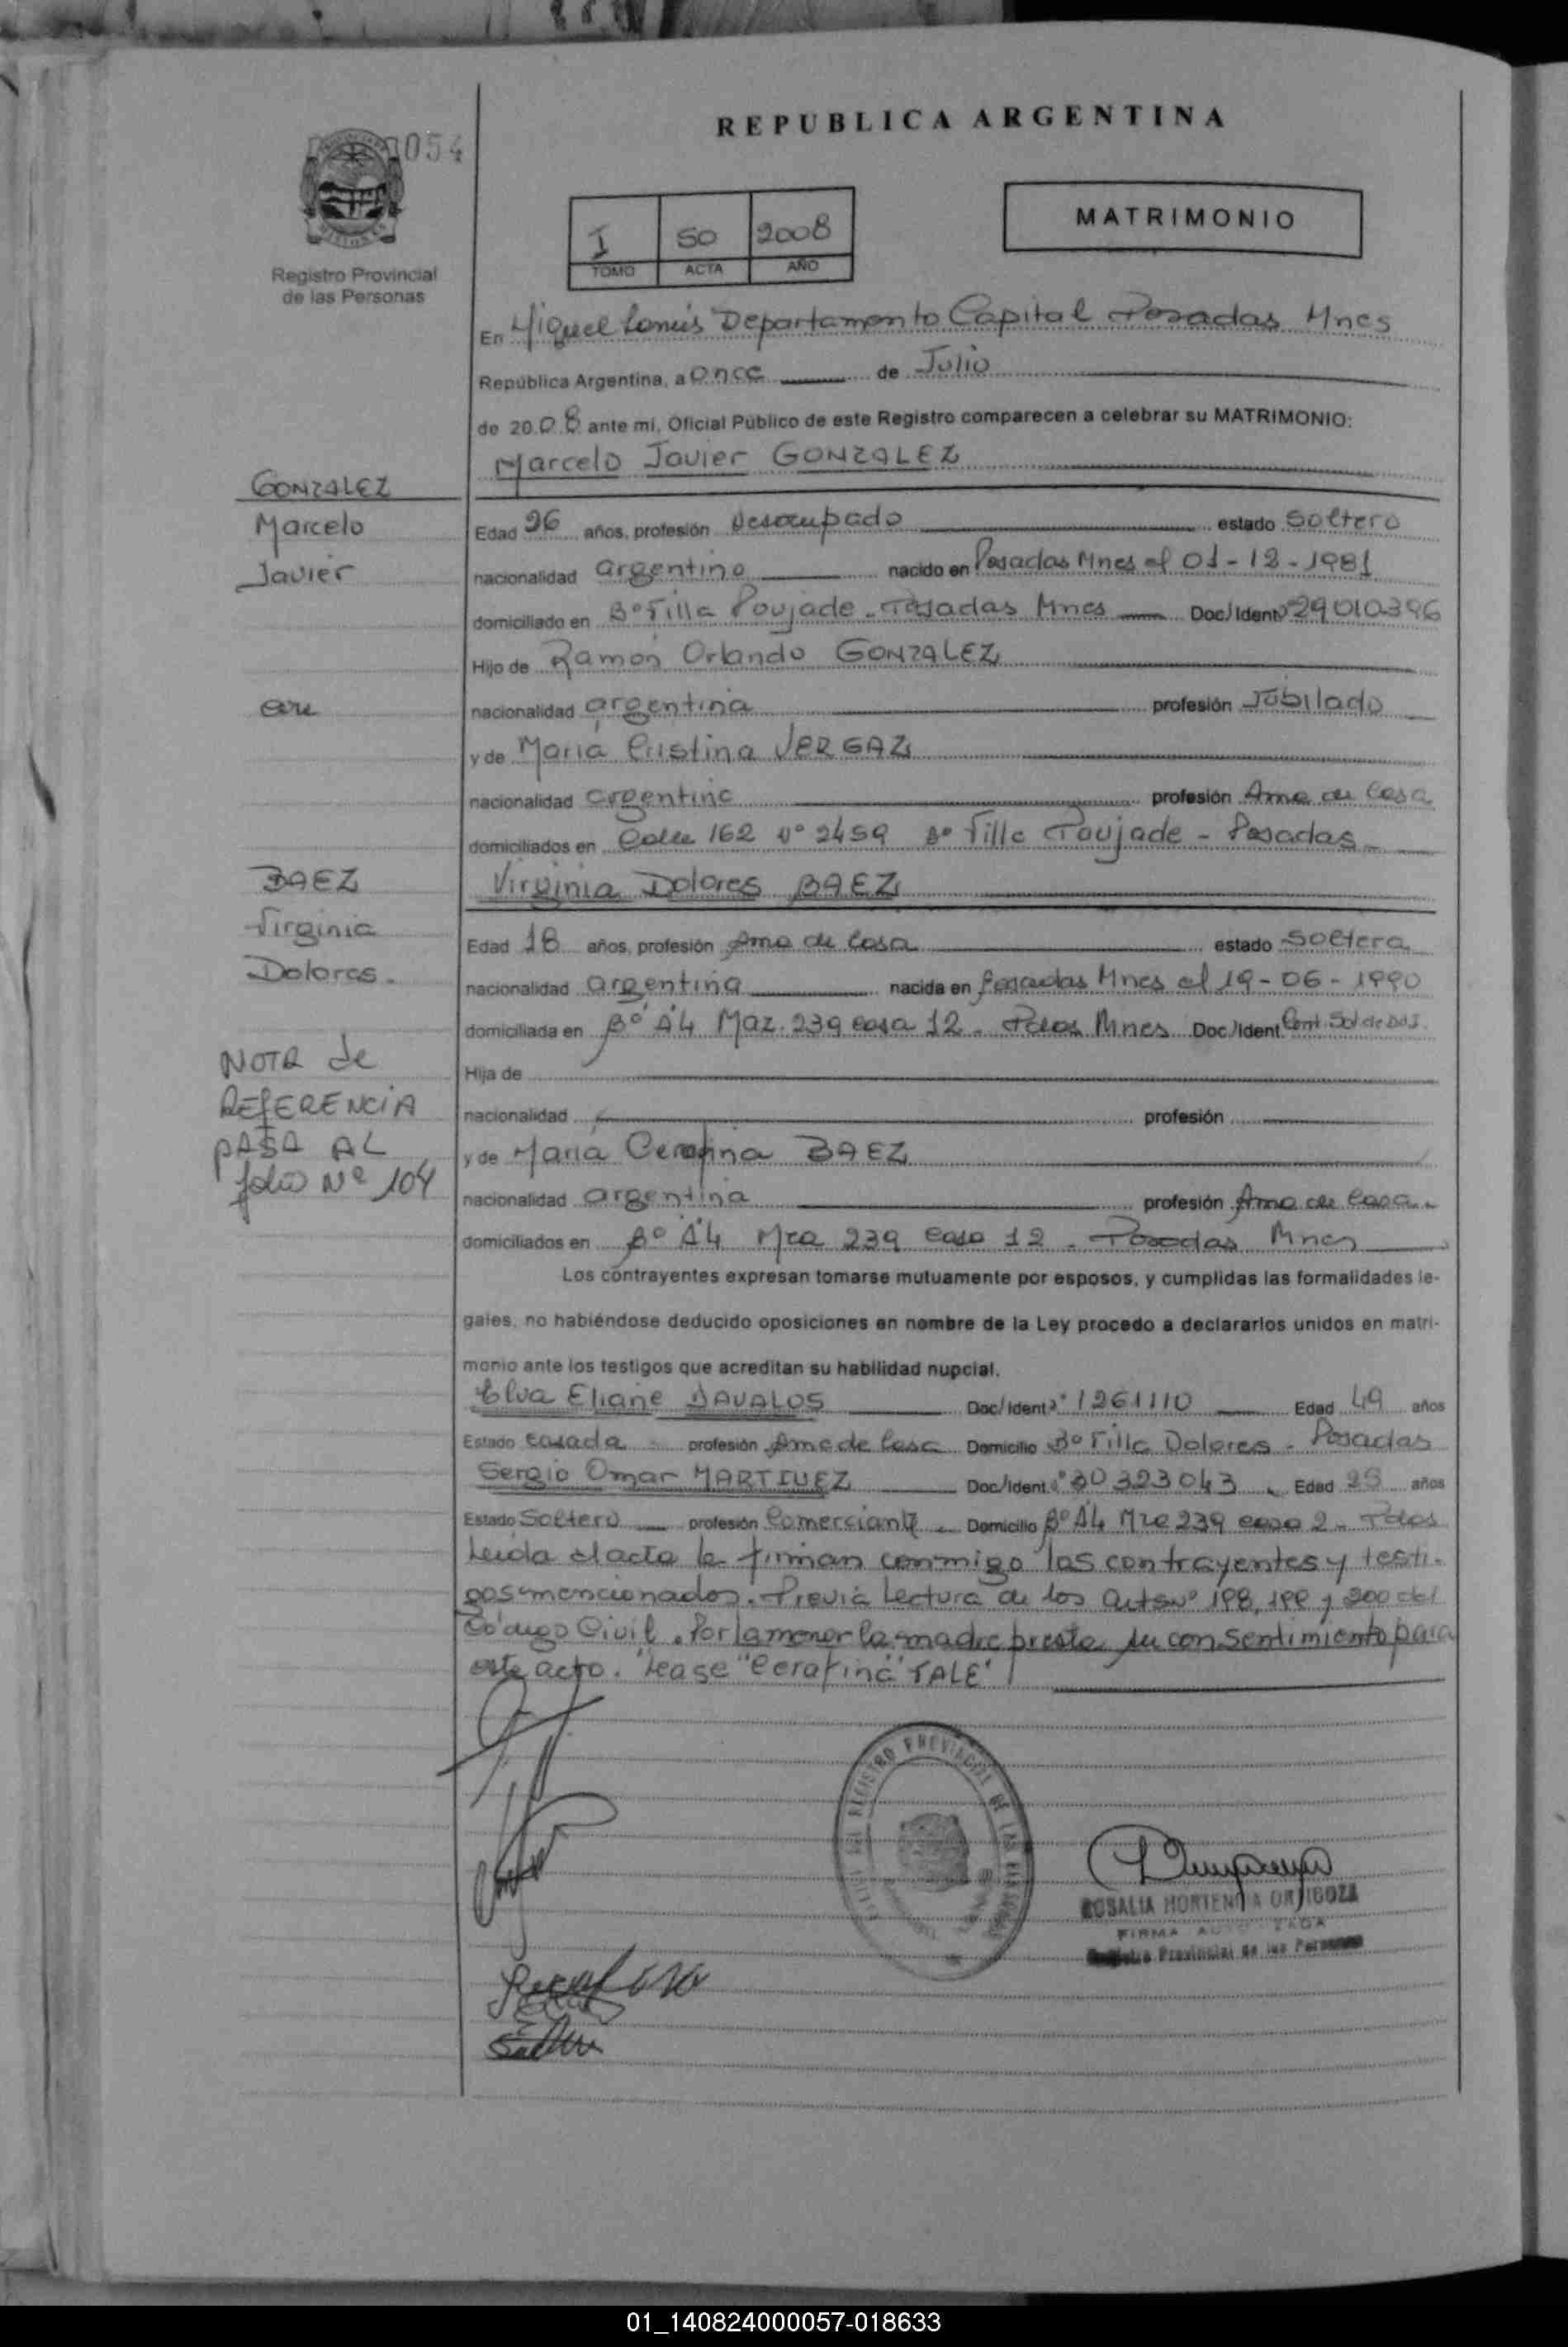 REPUBLICA ARGENTINA
054
MATRIMONIO
I 50 2008
TOMO ACTA AÑO
Registro Provincial
de las Personas
En Miguel Lanús Departamento Capital Posadas Mnes
República Argentina, a once de Julio
de 2008 ante mi, Oficial Público de este Registro comparecen a celebrar su MATRIMONIO:
Marcelo Javier GONZALEZ
GONZALEZ
Marcelo
Javier
Edad 26 años, profesión Desocupado estado Soltero
nacionalidad argentino nacido en Posadas Mnes el 01-12-1981
domiciliado en Bº Villa Poujade - Posadas Mnes Doc/Ident Nº 29010396
Hijo de Ramón Orlando GONZALEZ
con
nacionalidad argentina profesión Jubilado
y de María Cristina VERGAZ
nacionalidad argentina profesión Ama de Casa
domiciliados en Calle 162 Nº 2459 Bº Villa Poujade - Posadas
BAEZ
Virginia
Dolores.
Virginia Dolores BAEZ
Edad 18 años, profesión Ama de Casa estado Soltera
nacionalidad argentina nacida en Posadas Mnes el 19-06-1990
domiciliada en Bº A4 Maz. 239 casa 12 - Pdas Mnes Doc/Ident
NOTA de
REFERENCIA
PASA AL
folio Nº 104
Hija de
nacionalidad profesión
y de María BAEZ
nacionalidad argentina profesión Ama de Casa
domiciliados en Bº A4 Mza 239 casa 12 - Posadas Mnes
Los contrayentes expresan tomarse mutuamente por esposos, y cumplidas las formalidades le-
gales, no habiéndose deducido oposiciones en nombre de la Ley procedo a declararlos unidos en matri-
monio ante los testigos que acreditan su habilidad nupcial.
Elva Eliane DAVALOS Doc/Ident Nº 1261110 Edad 49 años
Estado casada profesión Ama de Casa Domicilio Bº Villa Dolores - Posadas
Sergio Omar MARTINEZ Doc/Ident. Nº 30323043 Edad 25 años
Estado Soltero profesión Comerciante Domicilio Bº A4 Mza 239 casa 2 - Pdas
Leida el acta la firman conmigo los contrayentes y testi-
gos mencionados. Previa Lectura de los Arts Nº 198, 199 y 200 del
Código Civil. Por la menor la madre presta su consentimiento para
este acto. Lease "Cerafina" VALE
REGISTRO PROVINCIAL DE LAS PERSONAS
ROSALIA HORTENCIA ORTIGOZA
FIRMA AUTORIZADA
Registro Provincial de las Personas
01_140824000057-018633